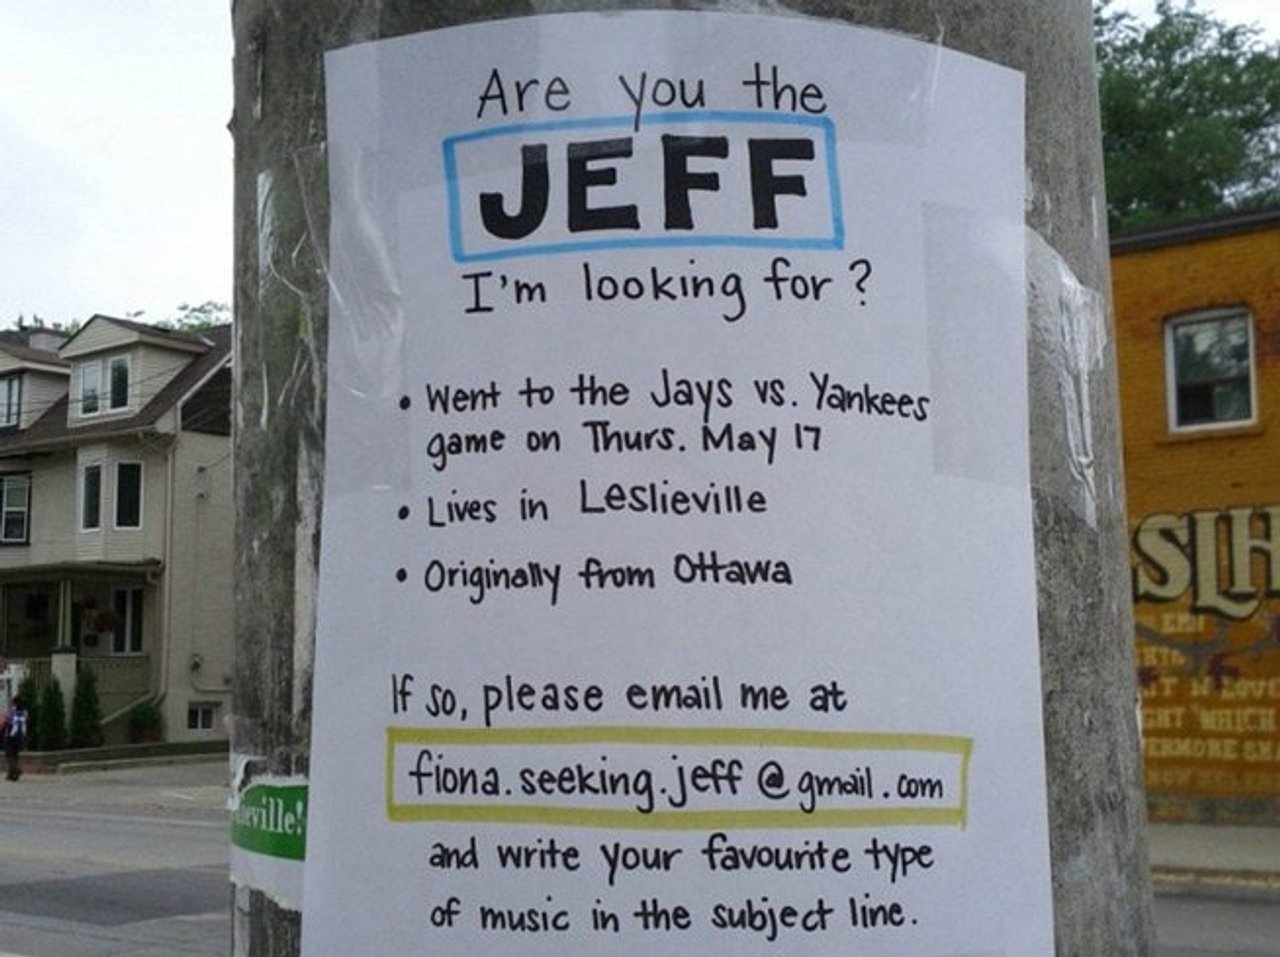 Are you the
JEFF
I'm looking for?
• Went to the Jays vs. Yankees
game on Thurs. May 17
• Lives in Leslieville
• Originally from Ottawa
If so, please email me at
fiona.seeking.jeff@gmail.com
and write your favourite type
of music in the subject line.
eville!
SLH
WHICH